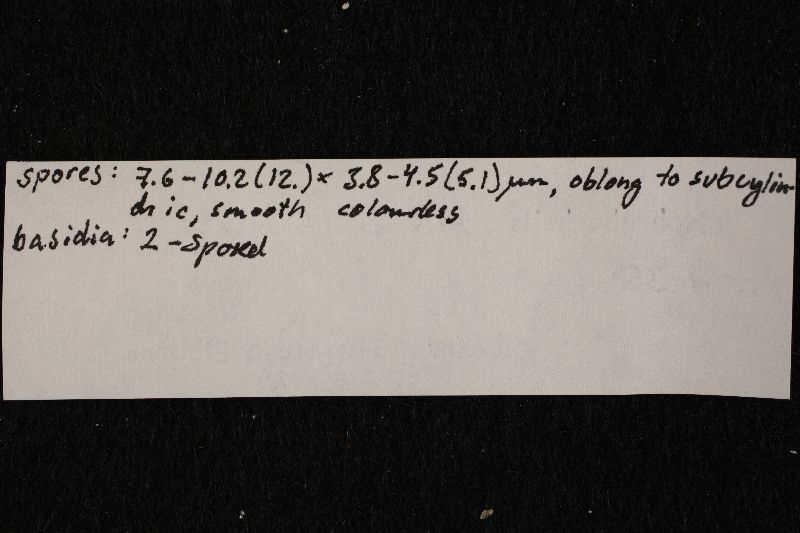 spores: 7.6-10.2(12.)× 3.8-4.5(5.1)µm, oblong to subcylin-
dric, smooth colourless
basidia: 2-spored